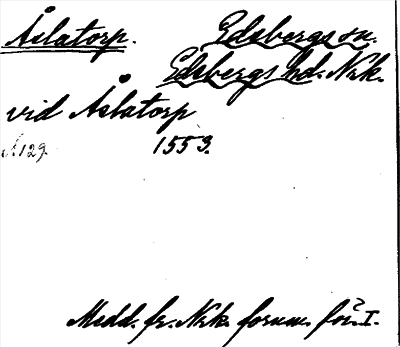 Åslatorp. Edsbergs sn.
Edsbergs hd. Nrk.
vid Åslatorp
129. 1553.
Medd. fr. Nrk. fornm. för. I.